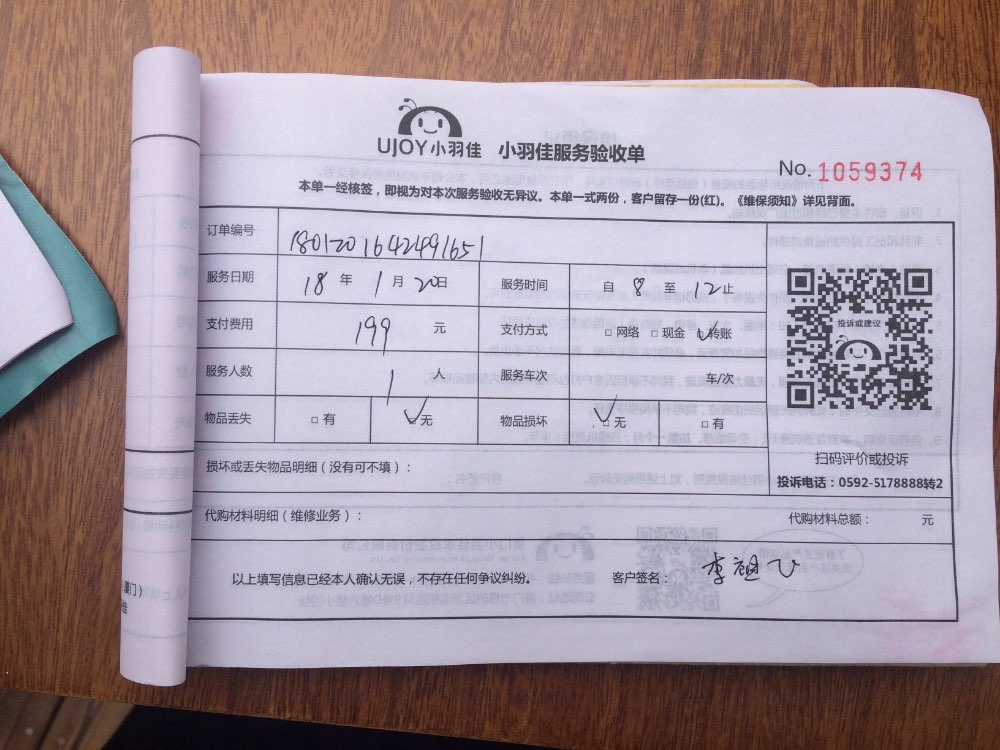 UJOY小羽佳 小羽佳服务验收单
No. 1059374
本单一经核签，即视为对本次服务验收无异议。本单一式两份，客户留存一份(红)。《维保须知》详见背面。
订单编号 1801201642491651
服务日期 18 年 1 月 20 日 服务时间 自 8 至 12 止
支付费用 199 元 支付方式 □ 网络 □ 现金 ✓ 转账
服务人数 1 人 服务车次 车/次
物品丢失 □ 有 ✓ 无 物品损坏 ✓ 无 □ 有
投诉或建议
扫码评价或投诉
投诉电话：0592-5178888转2
损坏或丢失物品明细（没有可不填）：
代购材料明细（维修业务）： 代购材料总额： 元
以上填写信息已经本人确认无误，不存在任何争议纠纷。 客户签名：